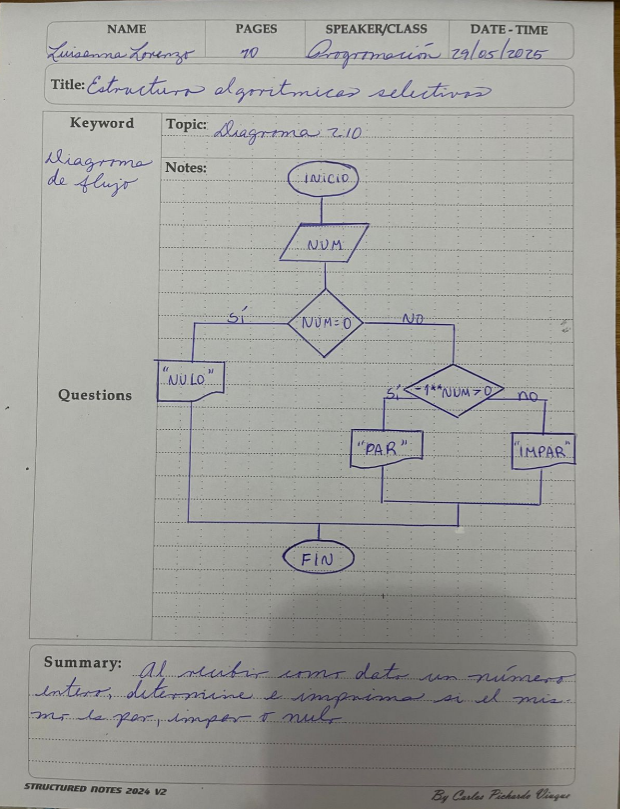 NAME PAGES SPEAKER/CLASS DATE - TIME
Luisanna Lorenzo 70 Programación 29/05/2025
Title: Estructura algoritmicas selectivas
Keyword Topic: Diagrama 2.10
Diagrama
de flujo
Notes:
INICIO
NUM
Sí NUM=0 NO
"NULO"
Sí -1**NUM>0 no
Questions
"PAR" "IMPAR"
FIN
Summary: Al recibir como dato un número
entero, determine e imprima si el mis-
mo es par, impar o nulo
STRUCTURED NOTES 2024 V2 By Carlos Pichardo Viuque